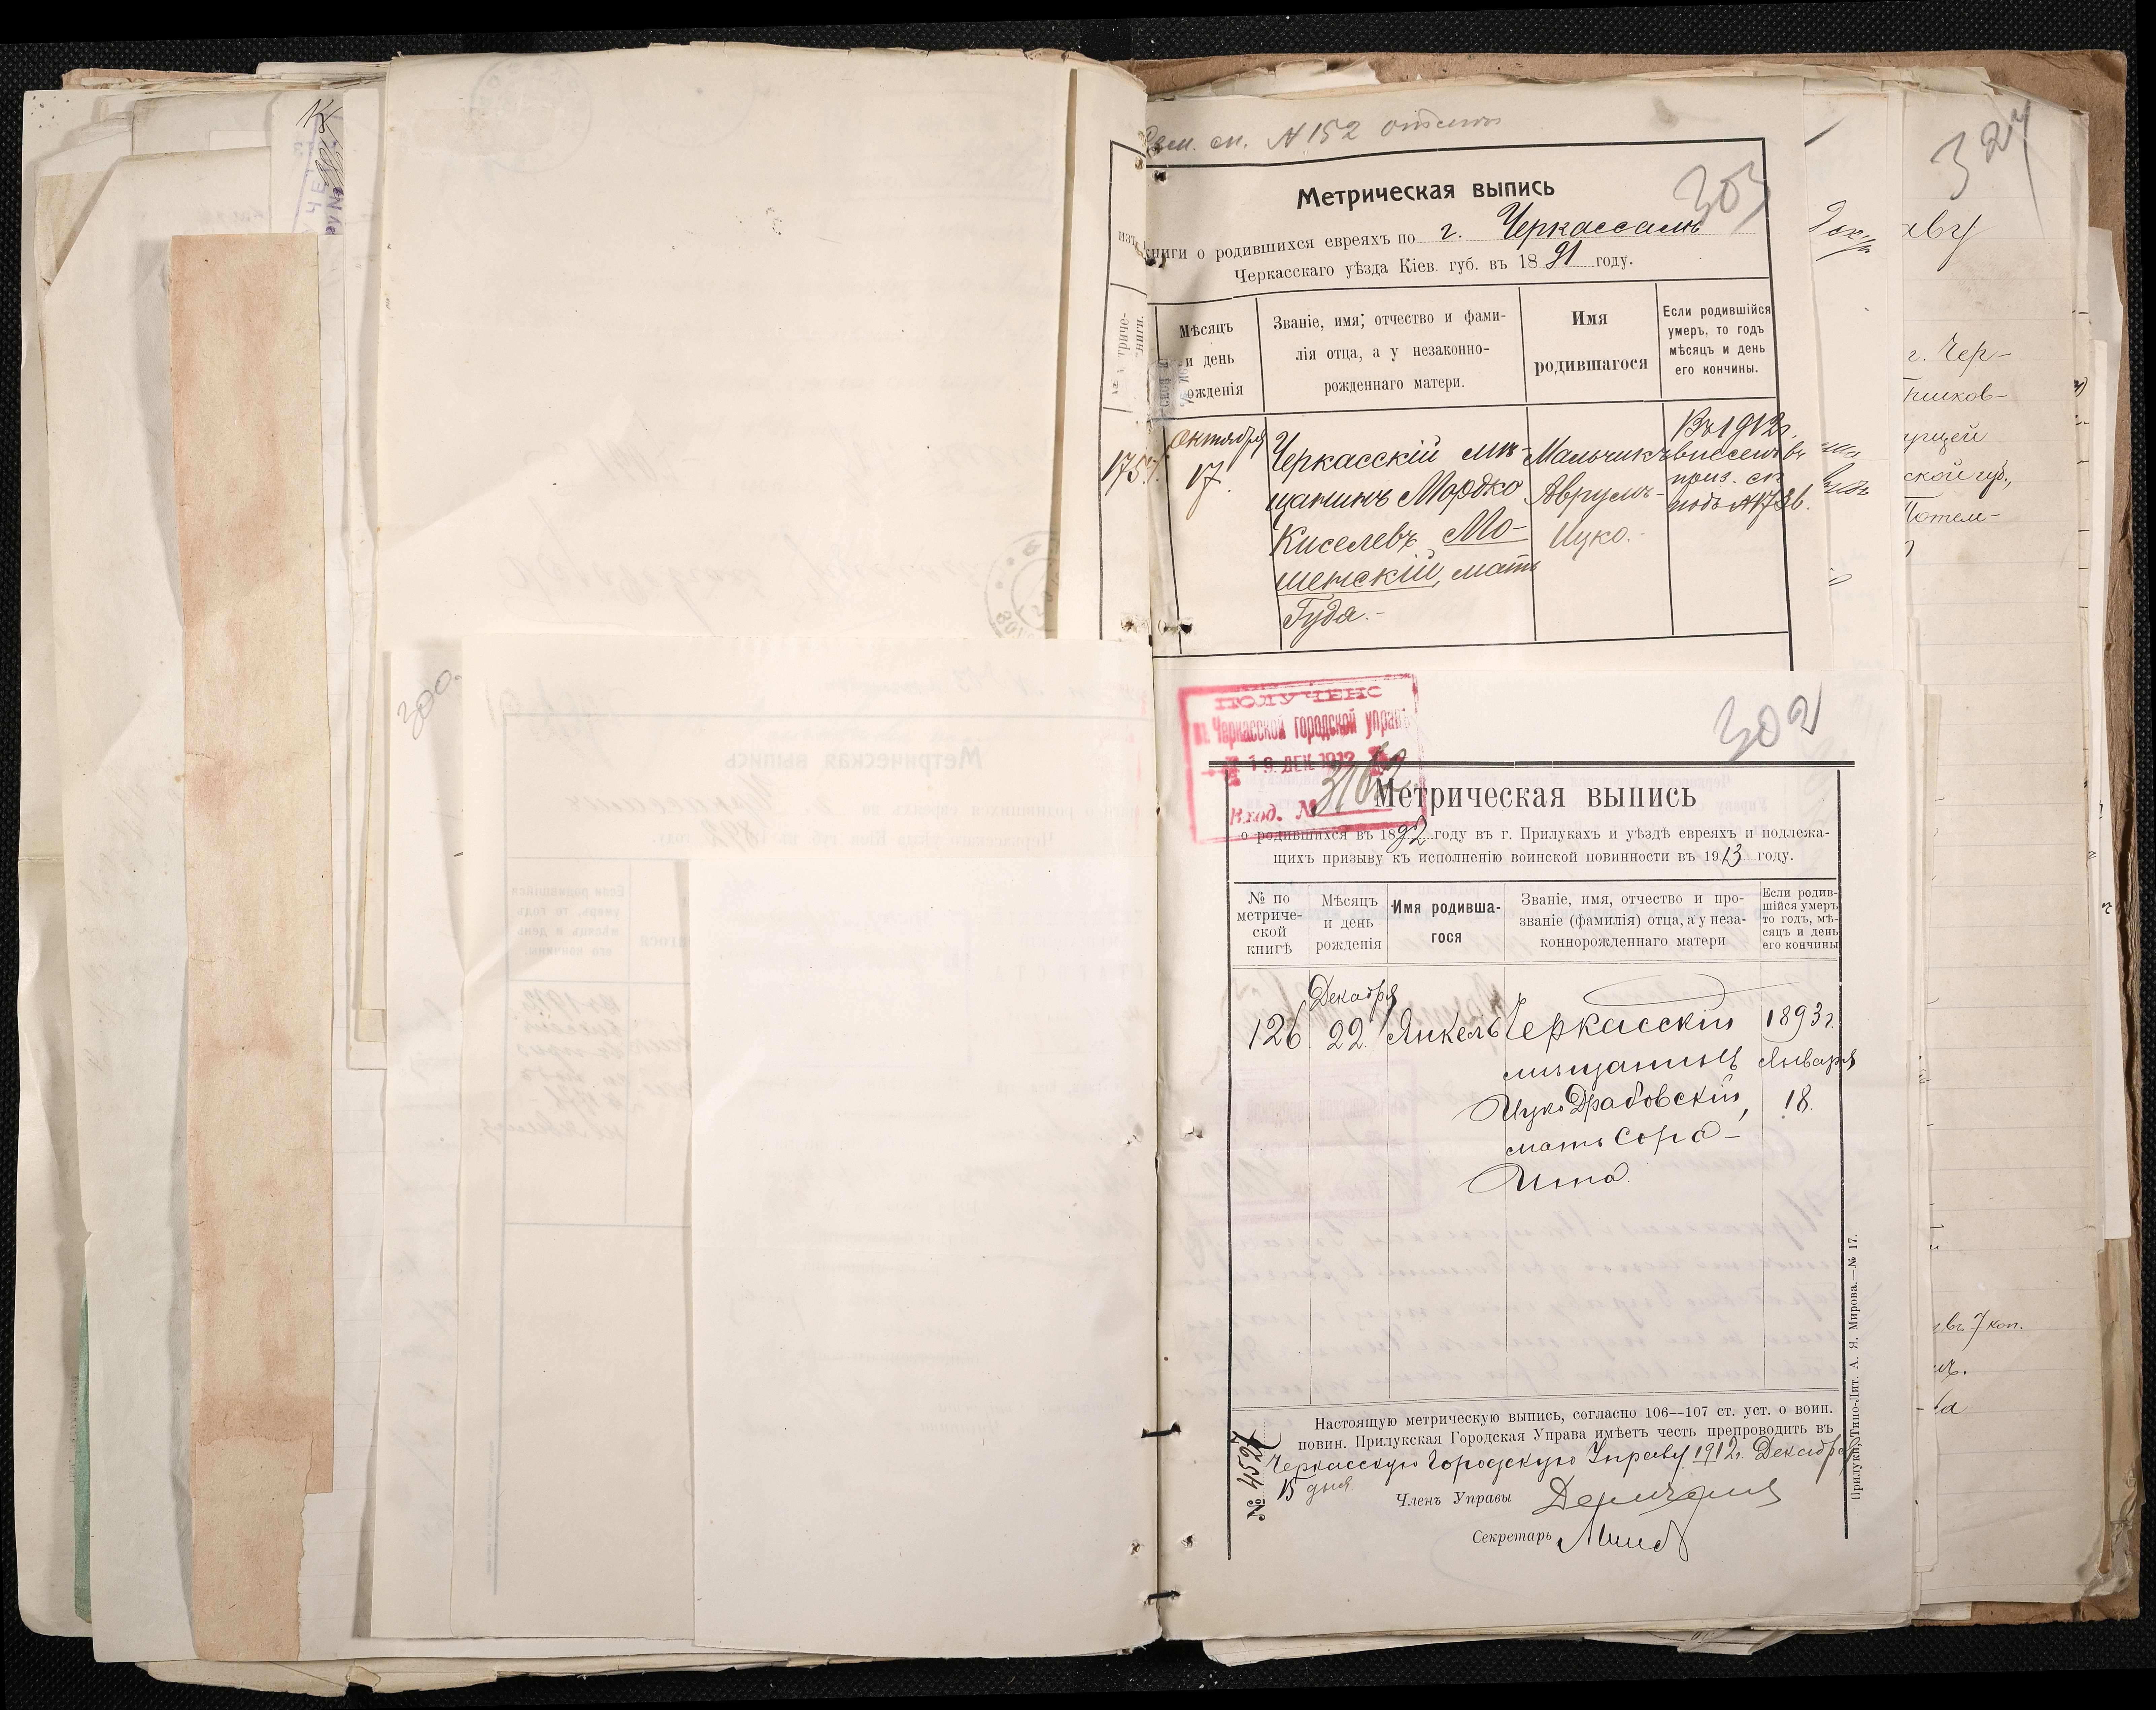 300.
№ 152
303
Метрическая выпись
изъ книги о родившихся евреяхъ по г. Черкассамъ
Черкасскаго уѣзда Кіев. губ. въ 1891 году.
Мѣсяцъ и день рожденія
Званіе, имя, отчество и фами-
лія отца, а у незаконно-
рожденнаго матери.
Имя
родившагося
Если родившійся
умеръ, то годъ
мѣсяцъ и день
его кончины.
175
Октября
17.
Черкасскій мѣ-
щанинъ Мордко
Киселевъ Мо-
шенскій, мать
Гуда.-
Мальчикъ
Аврумъ-
Ицко.-
Въ 1912 г.
внесенъ въ
приз. сп.
подъ №
324
аву
г. Чер-
ской губ.,
Потем-
7 коп.
ПОЛУЧЕНО
въ Черкасской городской управѣ
19 ДЕК. 1912
Вход. №
302
Метрическая выпись
о родившихся въ 1892 году въ г. Прилукахъ и уѣздѣ евреяхъ и подлежа-
щихъ призыву къ исполненію воинской повинности въ 1913 году.
№ по
метриче-
ской
книгѣ
Мѣсяцъ
и день
рожденія
Имя родивша-
гося
Званіе, имя, отчество и про-
званіе (фамилія) отца, а у неза-
коннорожденнаго матери
Если родив-
шійся умеръ
то годъ, мѣ-
сяцъ и день
его кончины
126.
Декабря
22
Янкель
Черкасскій
мѣщанинъ
Ицко Драбовскій,
мать Сора-
Ита.
1893 г.
Января
18.
Настоящую метрическую выпись, согласно 106—107 ст. уст. о воин.
повин. Прилукская Городская Управа имѣетъ честь препроводить въ
Черкасскую Городскую Управу 1912 г. Декабря
15 дня.
Членъ Управы
Секретарь
№ 7654
Прилуки, Типо-Лит. А. Я. Мирова.—№ 17.